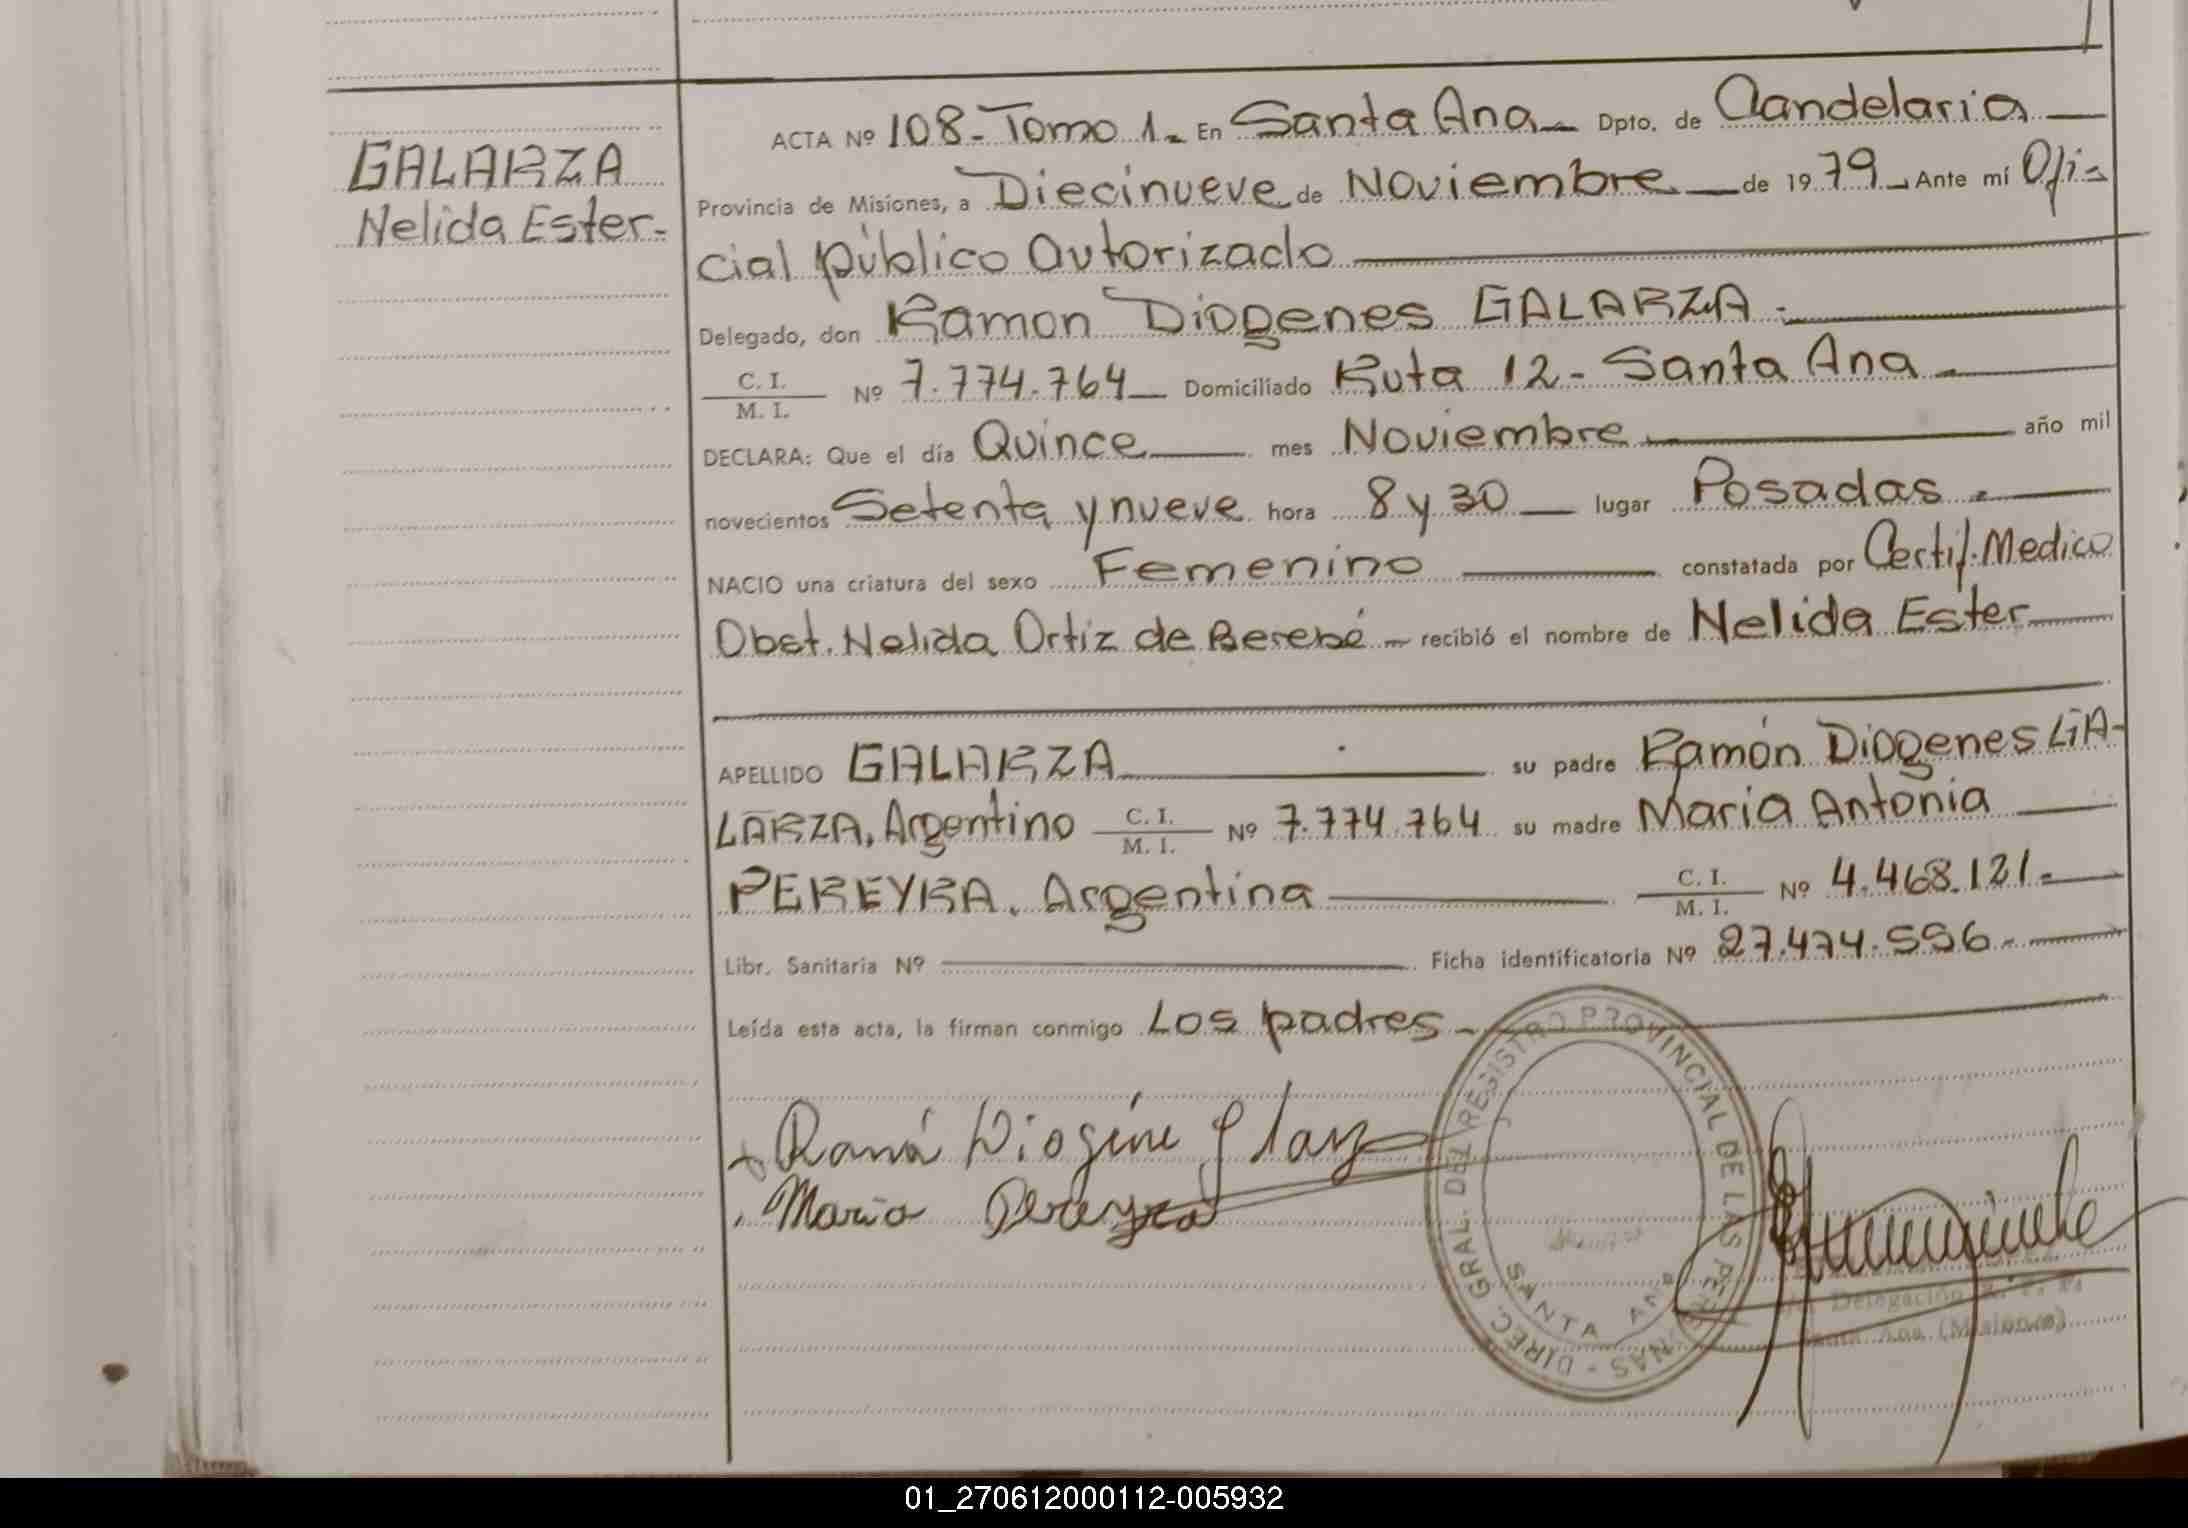 GALARZA
Nelida Ester-
ACTA Nº 108-Tomo 1- En Santa Ana Dpto. de Candelaria
Provincia de Misiones, a Diecinueve de Noviembre de 1979 Ante mí Ofi-
cial público autorizado
Delegado, don Ramon Diogenes GALARZA
C. I.
M. I. Nº 7.774.764 Domiciliado Ruta 12 - Santa Ana
DECLARA: Que el día Quince mes Noviembre año mil
novecientos Setenta y nueve hora 8 y 30 lugar Posadas
NACIO una criatura del sexo Femenino constatada por Certif. Medico
Obst. Nelida Ortiz de Berebé recibió el nombre de Nelida Ester
APELLIDO GALARZA su padre Ramón Diogenes GA-
LARZA, Argentino C. I. M. I. Nº 7.774.764 su madre Maria Antonia
PEREYRA, Argentina C. I. M. I. Nº 4.468.121-
Libr. Sanitaria Nº Ficha identificatoria Nº 27.474.556
Leída esta acta, la firman conmigo Los padres
DIREC. GRAL. DEL REGISTRO PROVINCIAL DE LAS PERSONAS -
SANTA ANA
Maria Pereyra
Delegación
Santa Ana (Misiones)
01_270612000112-005932